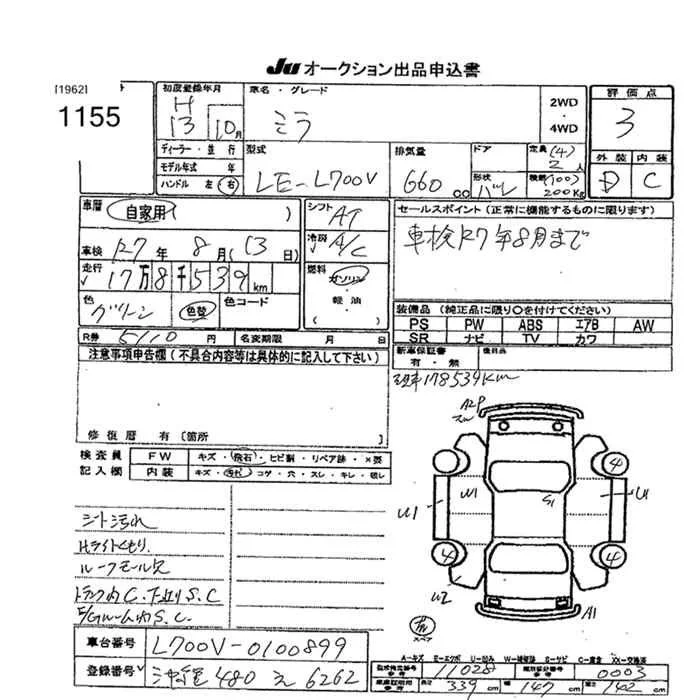 JU オークション出品申込書
[1962]
1155
初度登録年月
H
13 10月
車名・グレード
ミラ
2WD
・
4WD
評価点
3
ディーラー・並行
モデル年式 年
ハンドル 左 右
型式
LE-L700V
排気量
660 cc
ドア
形状
バン
定員 (4)
2人
積載 (100)
200Kg
外装 内装
D C
車歴
自家用 ( )
シフト
AT
セールスポイント (正常に機能するものに限ります)
車検R7年8月まで
車検 R7 年 8 月 (13 日)
冷房
A/C
走行
17万8千539km
燃料
ガソリン
・
軽油
色
グリーン
色替
色コード
装備品 (純正品に限り○を付けてください)
PS PW ABS エアB AW
SR ナビ TV カワ
R券 5110 円 名変期限 月 日
新車保証書
有・無
後日品
注意事項申告欄 (不具合内容等は具体的に記入して下さい)
現車178539Km
修復歴 有 (箇所
検査員
記入欄
FW
キズ・飛石・ヒビ割・リペア跡・×要
内装
キズ・汚れ・コゲ・穴・スレ・キレ・破レ
A2P
4
4
4
W1
S1
U1
U1
U2
A1
スペア
シート汚れ
Hライトくもり
ルーフモール欠
トランク内C. 下廻りS.C
E/Gルーム内S.C.
車台番号 L700V-0100899
登録番号 480 え 6262
A-キズ E-エクボ U-凹み W-補修跡 S-サビ C-腐食 XX-交換済
型式指定番号
参考
11028
類別区分番号
参考
0003
車庫証明用
参考
長さ 339 cm 幅 147 cm 高さ 142 cm